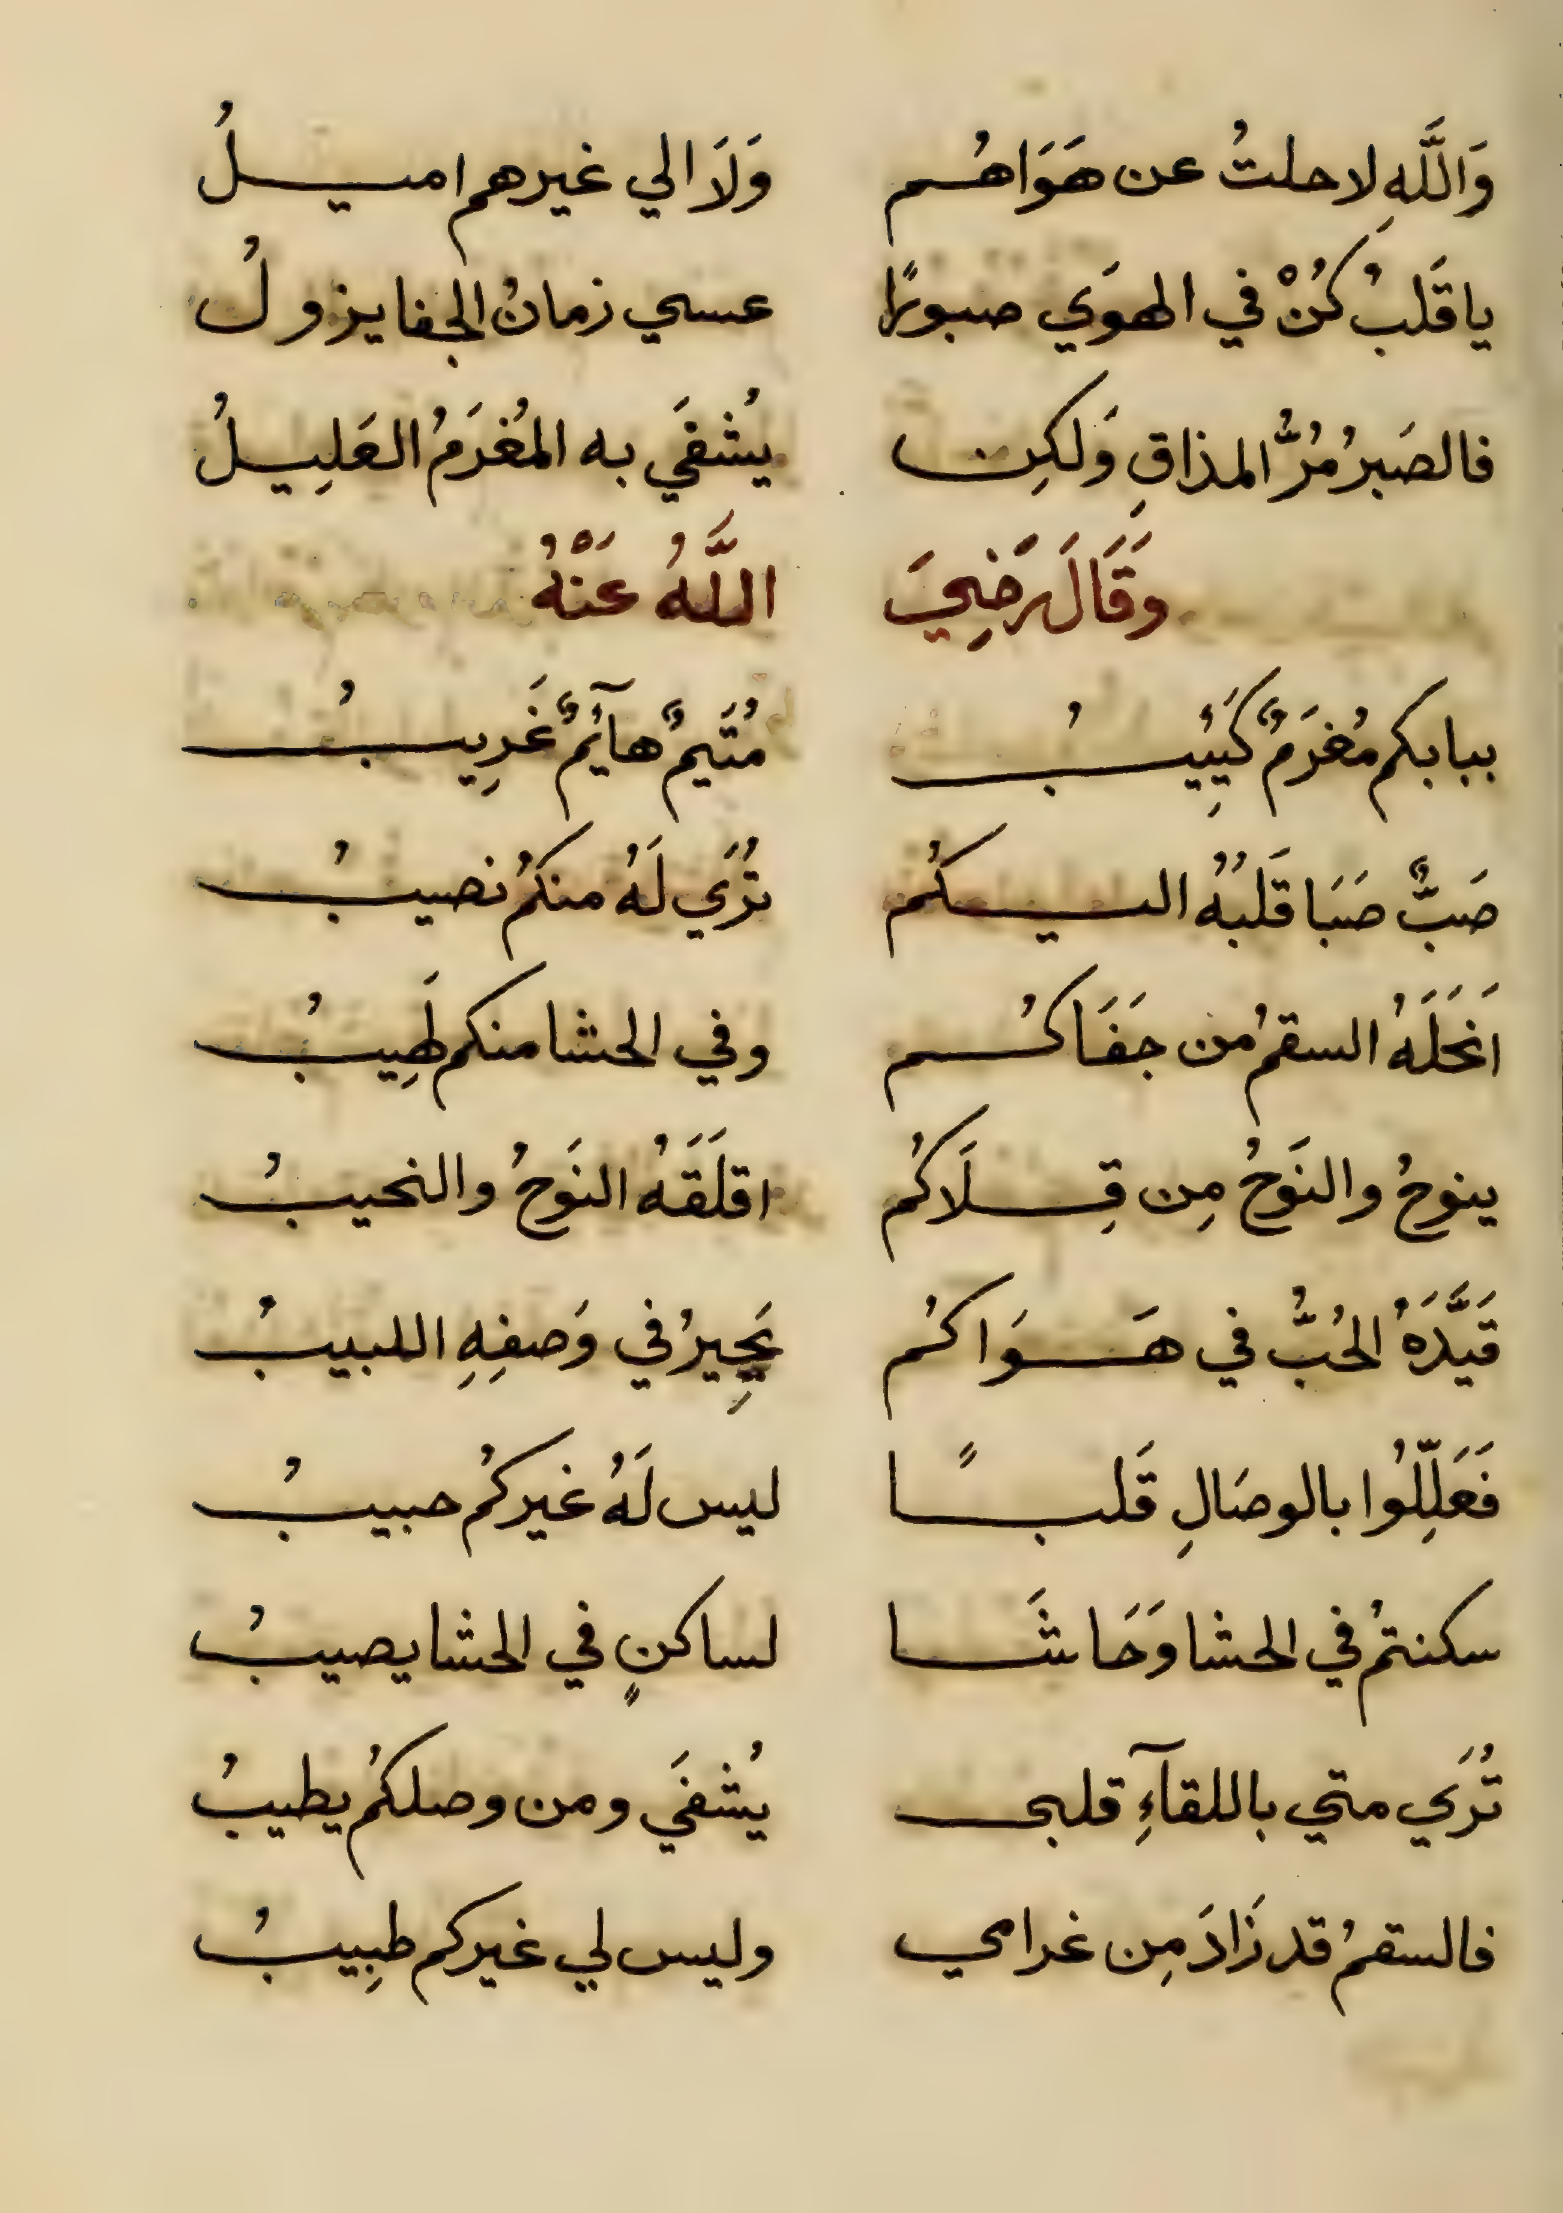 وَاللَّهِ لا حلتُ عن هَوَاهُم وَلَا الي غيرهم اميلُ
يا قَلبُ كُنْ في الهوَي صبورًا عسي زمانُ الجفا يزولُ
فالصَبرُ مُرُّ المذاقِ وَلكِن يُشفَي به المُغرَمُ العَلِيلُ
وَقَالَ رَضِيَ اللَّهُ عَنْهُ
ببابكم مُغرَمٌ كَئِيبُ مُتَيمٌ هآئمٌ غَرِيبُ
صَبٌّ صَبَا قَلبُهُ اليكُم تُرَي لَهُ منكُم نصيبُ
اَنحَلَهُ السقمُ من جَفَاكُم وفي الحشا منكم لَهِيبُ
ينوحُ والنَوحُ مِن قِلَاكُم اقلَقَهُ النَوحُ والنحيبُ
قَيَّدَهُ الحُبُّ في هَوَاكُم يَحِيرُ في وَصفِهِ اللبيبُ
فَعَلِّلُوا بالوصَالِ قَلبًا ليس لَهُ غيركُم حبيبُ
سكنتمُ في الحشا وَحَاشَا لساكنٍ في الحشا يصيبُ
تُرَي متي باللقآءِ قلبي يُشفَي ومن وصلكُم يطيبُ
فالسقمُ قد زَادَ مِن غرامي وليس لي غيركم طبِيبُ